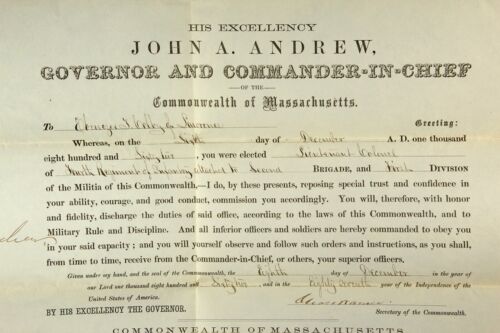 HIS EXCELLENCY
JOHN A. ANDREW,
GOVERNOR AND COMMANDER-IN-CHIEF
OF THE
Commonwealth of Massachusetts.
To Ebenezer T. Colby of Lawrence Greeting:
Whereas, on the Sixth day of December A. D. one thousand
eight hundred and Sixty two, you were elected Lieutenant Colonel
of Regiment of Infantry attached to Second BRIGADE, and First DIVISION
of the Militia of this Commonwealth,—I do, by these presents, reposing special trust and confidence in
your ability, courage, and good conduct, commission you accordingly. You will, therefore, with honor
and fidelity, discharge the duties of said office, according to the laws of this Commonwealth, and to
Military Rule and Discipline. And all inferior officers and soldiers are hereby commanded to obey you
in your said capacity; and you will yourself observe and follow such orders and instructions, as you shall,
from time to time, receive from the Commander-in-Chief, or others, your superior officers.
Given under my hand, and the seal of the Commonwealth, the Eighth day of December in the year of
our Lord one thousand eight hundred and Sixty two, and in the Eighty seventh year of the Independence of the
United States of America.
BY HIS EXCELLENCY THE GOVERNOR. Secretary of the Commonwealth.
COMMONWEALTH OF MASSACHUSETTS